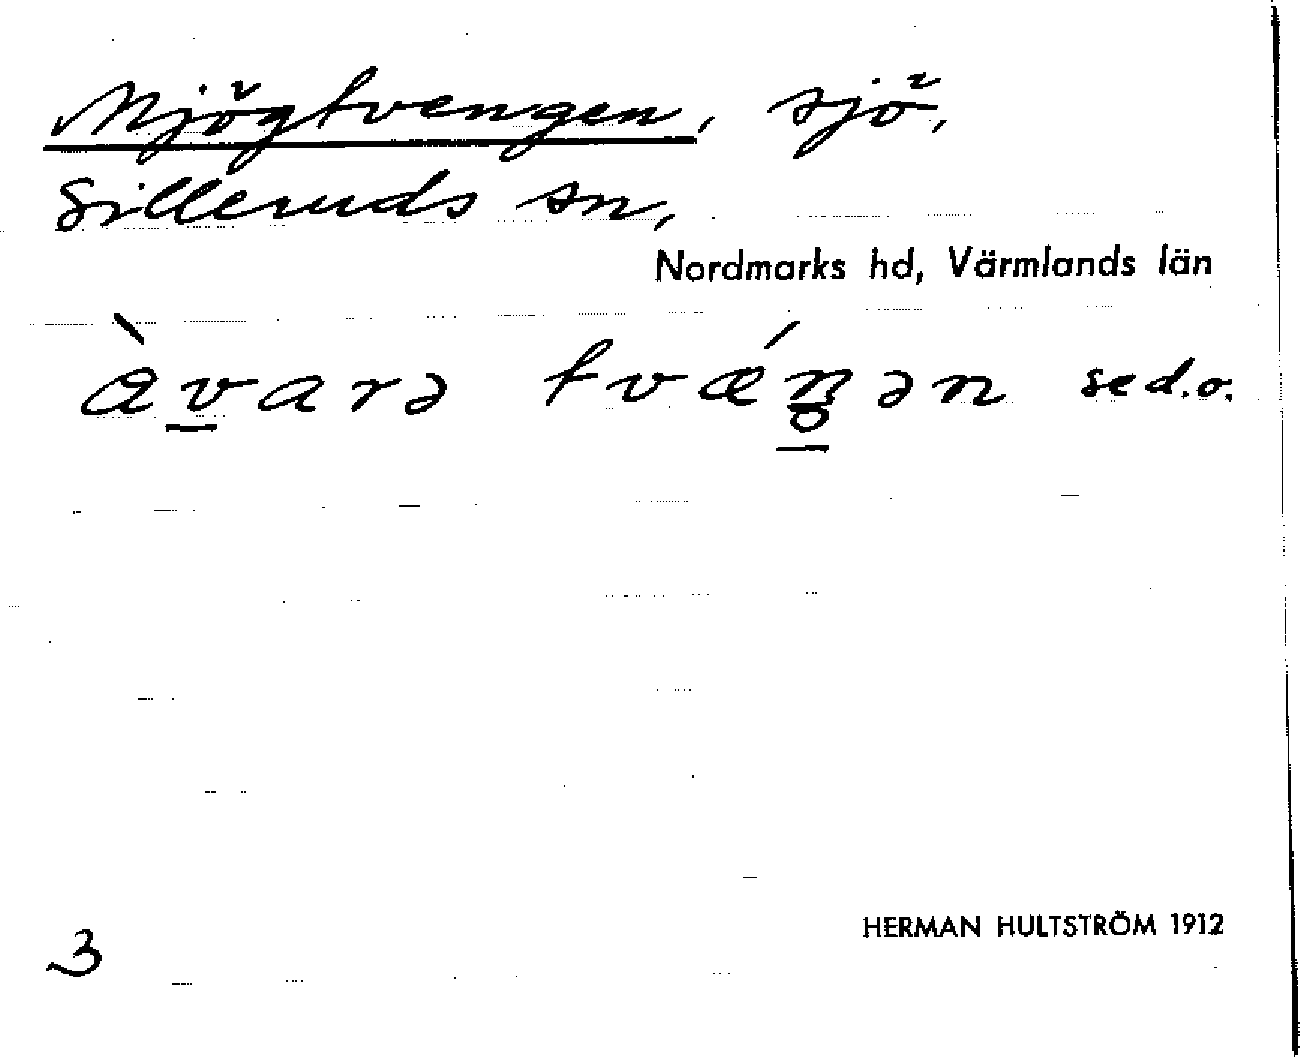 Mjögtvengen, sjö,
Silleruds sn,
Nordmarks hd, Värmlands län
àv̲arə tvǽn̲ən se d.o.
HERMAN HULTSTRÖM 1912
3